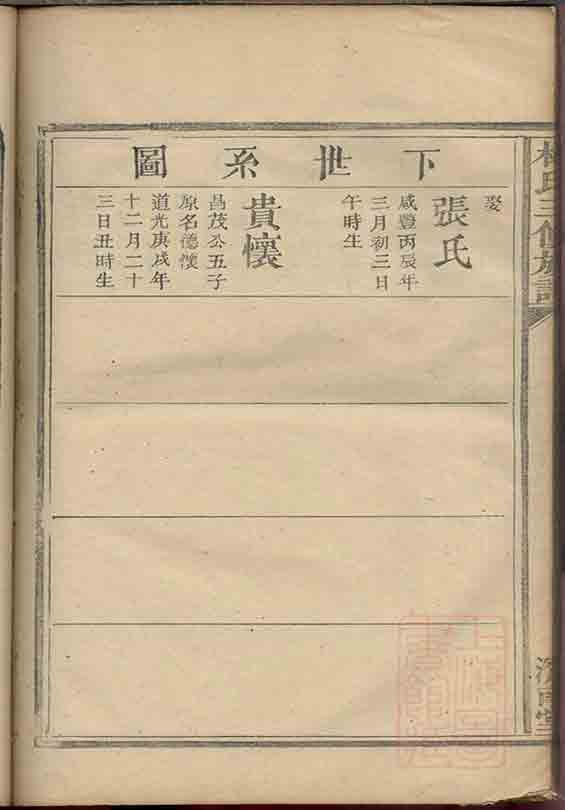 下世系圖
娶
張氏
咸豐丙辰年
三月初三日
午時生
貴懷
昌茂公五子
原名德懷
道光庚戌年
十二月二十
三日丑時生